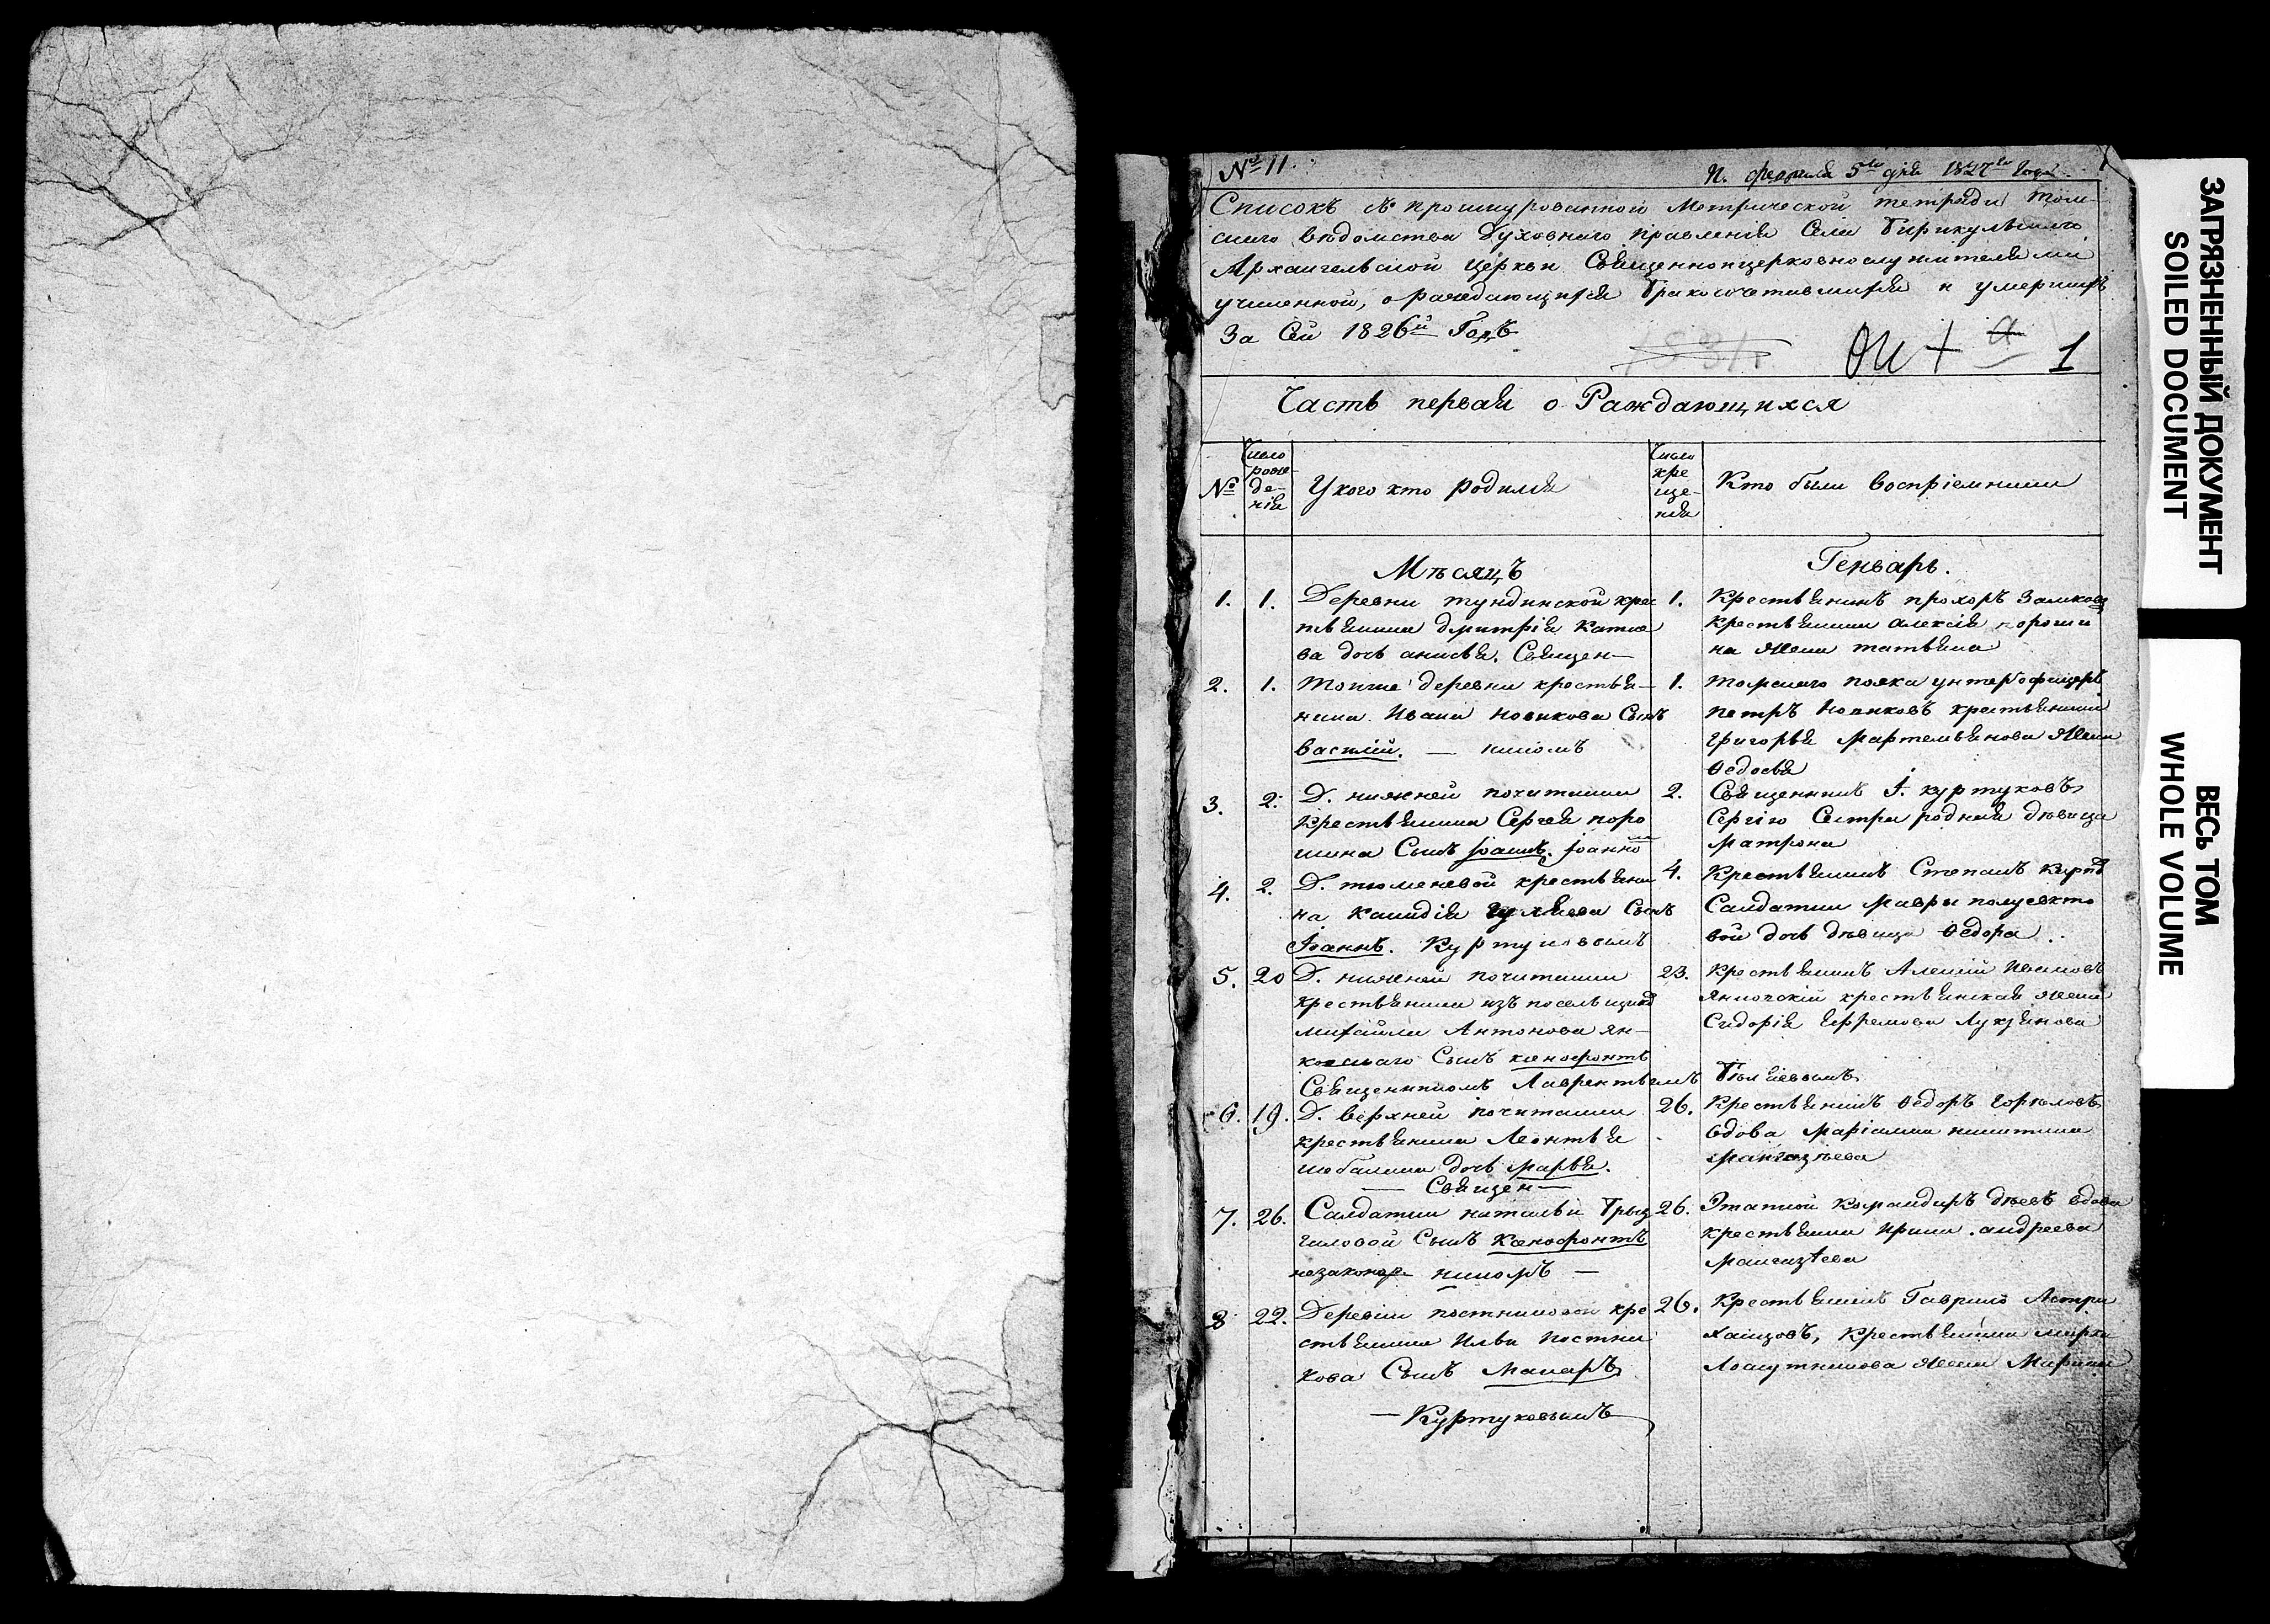 № 11.
П. февраля 5го дня 1827го года.
Списокъ съ прошнурованной Метрической тетради Том-
скаго вѣдомства Духовнаго правленія Села Тирикульскаго
Архангельской Церкви Священноцерковнослужителями
учиненной, о раждающихся бракосочетавшихся и умершихъ
За Сей 1826й Годъ
1
Часть первая о Раждающихся
№
Число рожде-
де-
нія
У кого кто родился
Число
кре
ще-
нія
Кто были воспріемники
Мѣсяцъ
Генварь.
1. 1. Деревни тундинской крес
тьянина дмитрія
ва дочь анисья. Священ—
1. Крестьянинъ прохоръ
крестьянина алексія пороши
на жена татьяна
2. 1. Тоиже деревни крестья—
нина Ивана новикова Сынъ
василій. — никомъ
1. томскаго полка унтеръофицеръ
петръ новиковъ крестьянина
григорья мартемьянова жена
Ѳедосья
3. 2. Д. нижней почитанки
крестьянина Сергея поро
шина Сынъ Іоаннъ. Іоанно
2. Священникъ І. куртуковъ
Сергію Сестра родная дѣвица
матрона
4. 2. Д. тюменевой крестьяни
на Сынъ
Іоаннъ. Куртуковымъ
4. Крестьянинъ Степанъ
Салдатки мавры полуекто
вой дочь дѣвица Ѳедора
5. 20 Д. нижней почитанки
крестьянина изъ посельщиковъ
михайли Антонова ян-
ковскаго Сынъ ксенофонтъ
Священникомъ Лаврентьемъ
23. крестьянинъ Алексій Ивановъ
крестьянская жена
Сидорія Ефремова Лукьянова
6. 19. Д. верхней почитанки
крестьянина Леонтья
шабалина дочь марѳа.
— Священ—
26. Крестьянинъ Ѳедоръ Горѣловъ
вдова маріамна никитина
мангазѣева
7. 26. Салдатки натальи
Сынъ Ксенофонтъ
незаконорж никомъ —
26. Этапной Командиръ вдова
крестьянка ирина андреева
мангазѣева
8 22. Деревни постниковой кре
стьянина Ильи постни
кова Сынъ Макаръ
— Куртуковымъ
26. Крестьянинъ Гаврило Астра
ханцовъ, крестьянина марка
Лоскутникова жена Марина
ЗАГРЯЗНЕННЫЙ ДОКУМЕНТ
SOILED DOCUMENT
ВЕСЬ ТОМ
WHOLE VOLUME